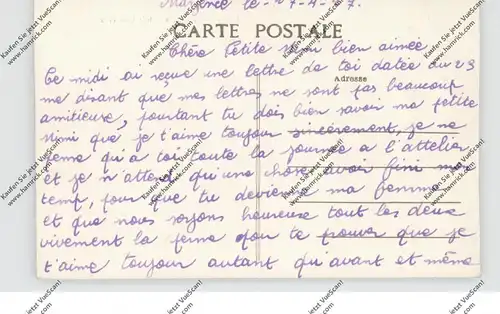 Mayence le 27-4-27.
CARTE POSTALE
Chère Petite Nini bien aimée
Ce midi ai reçue une lettre de toi datée du 23
Adresse
me disant que mes lettres ne sont pas beaucoup
amitieuse, pourtant tu dois bien savoir ma petite
Nini que je t'aime toujour sincèrement, je ne
pense qui a toi toute la journée a l'attelier
et je n'attend qu'une chose avoir fini mon
temp, pour que tu devienne ma femme
et que nous soyons heureuse tout les deux
vivement la ferme pour te prouver que je
t'aime toujour autant qu'avant et même